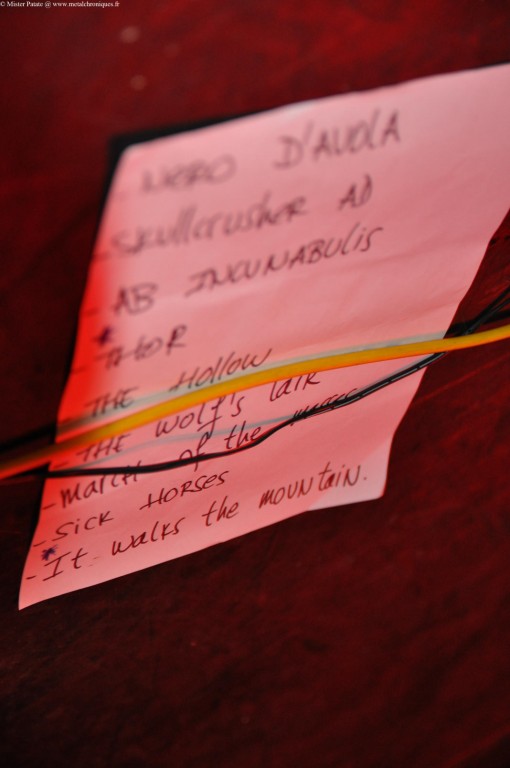 © Mister Patate @ www.metalchroniques.fr
- NERO D'AVOLA
- Skullcrusher AD
- AB INCUNABULIS
* - THOR
- THE Hollow
- THE wolf's lair
- march of the
- Sick HORSES
* - It walks the mountain.